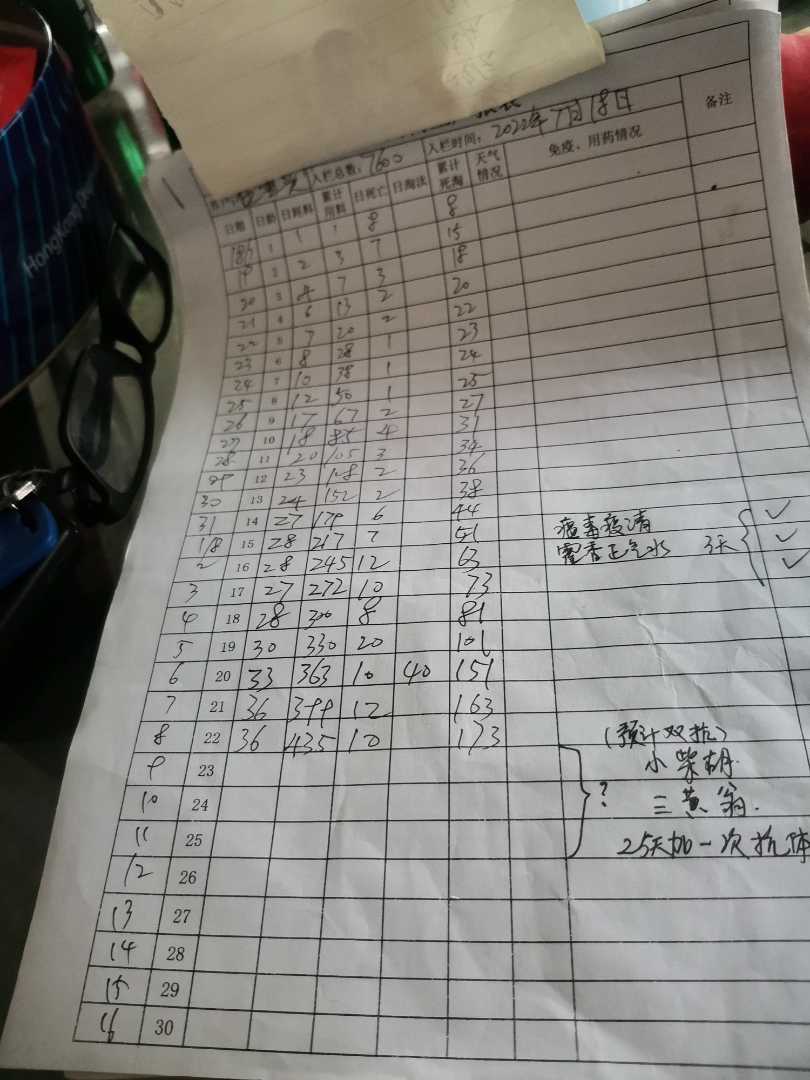 入栏总数：7600 入栏时间：2022年7月18日 备注
日期 日龄 日耗料 累计用料 日死亡 日淘汰 累计死淘 天气情况 免疫、用药情况
1 1 8 8
19 2 2 3 7 15
20 3 4 7 3 18
21 4 6 13 2 20
22 5 7 20 2 22
23 6 8 28 1 23
24 7 10 38 1 24
25 8 12 50 1 25
26 9 17 67 2 27
27 10 18 85 4 31
28 11 20 105 3 34
29 12 23 128 2 36
30 13 24 152 2 38
31 14 27 179 6 44 病毒疫清
1/8 15 28 217 7 51 霍香正气水 3天
2 16 28 245 12 63
3 17 27 272 10 73
4 18 28 300 8 81
5 19 30 330 20 101
6 20 33 363 10 40 151
7 21 36 399 12 163
8 22 36 435 10 173 (预计双抗)
9 23 小柴胡
10 24 ? 三黄翁.
11 25 25天加一次抗体
12 26
13 27
14 28
15 29
16 30
HongKong